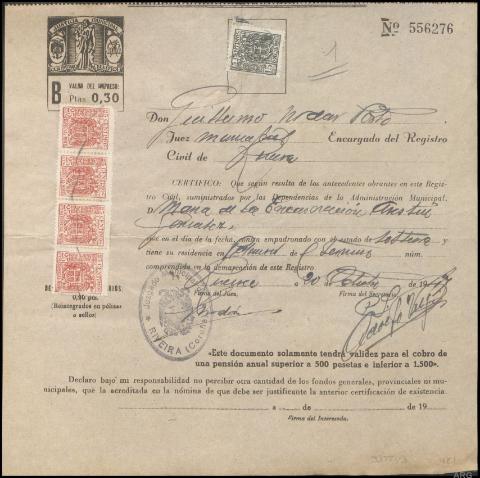 JUSTICIA MUNICIPAL
Nº 556276
B VALOR DEL IMPRESO:
Ptas. 0,30
1
Don Guillermo
Juez municipal Encargado del Registro
Civil de Riveira
CERTIFICO: Que según resulta de los antecedentes obrantes en este Regis-
tro Civil, suministrados por las Dependencias de la Administración Municipal.
D. Maria de la Encarnación
González
que en el día de la fecha, consta empadronado con el estado de soltera y
tiene su residencia en núm.
comprendida en la demarcación de este Registro
Riveira a 20 de Octubre de 194
Firma del Juez, Firma del Secretario,
0,20 pta.
(Reintegrados en pólizas
o sellos)
RIVEIRA (Coruña)
«Este documento solamente tendrá validez para el cobro de
una pensión anual superior a 500 pesetas e inferior a 1.500».
Declaro bajo mi responsabilidad no percibir otra cantidad de los fondos generales, provinciales ni mu-
nicipales, que la acreditada en la nómina de que debe ser justificante la anterior certificación de existencia.
a de de 19
Firma del Interesado,
ARG